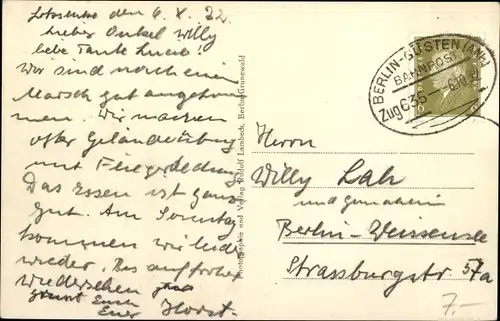 den 6. X. 32.
Lieber Onkel Willy
liebe Tante Lucie!
Wir sind nach ein
Marsch gut angekom
men. Wir machen
Geländeübung
mit Fliegerdeckung
Das Essen ist ganz
gut. Am Sonntag
kommen wir leider
wieder. Bis auf frohes
Wiedersehen
grüsst Euch
Euer Horst.
Photographie und Verlag Rudolf Lambeck, Berlin-Grunewald
BERLIN-GÜSTEN (ANH)
BAHNPOST
Zug 635
6.10.32
Herrn
Willy Lah
Berlin-Weissensee
Strassburgstr. 57a
7.-